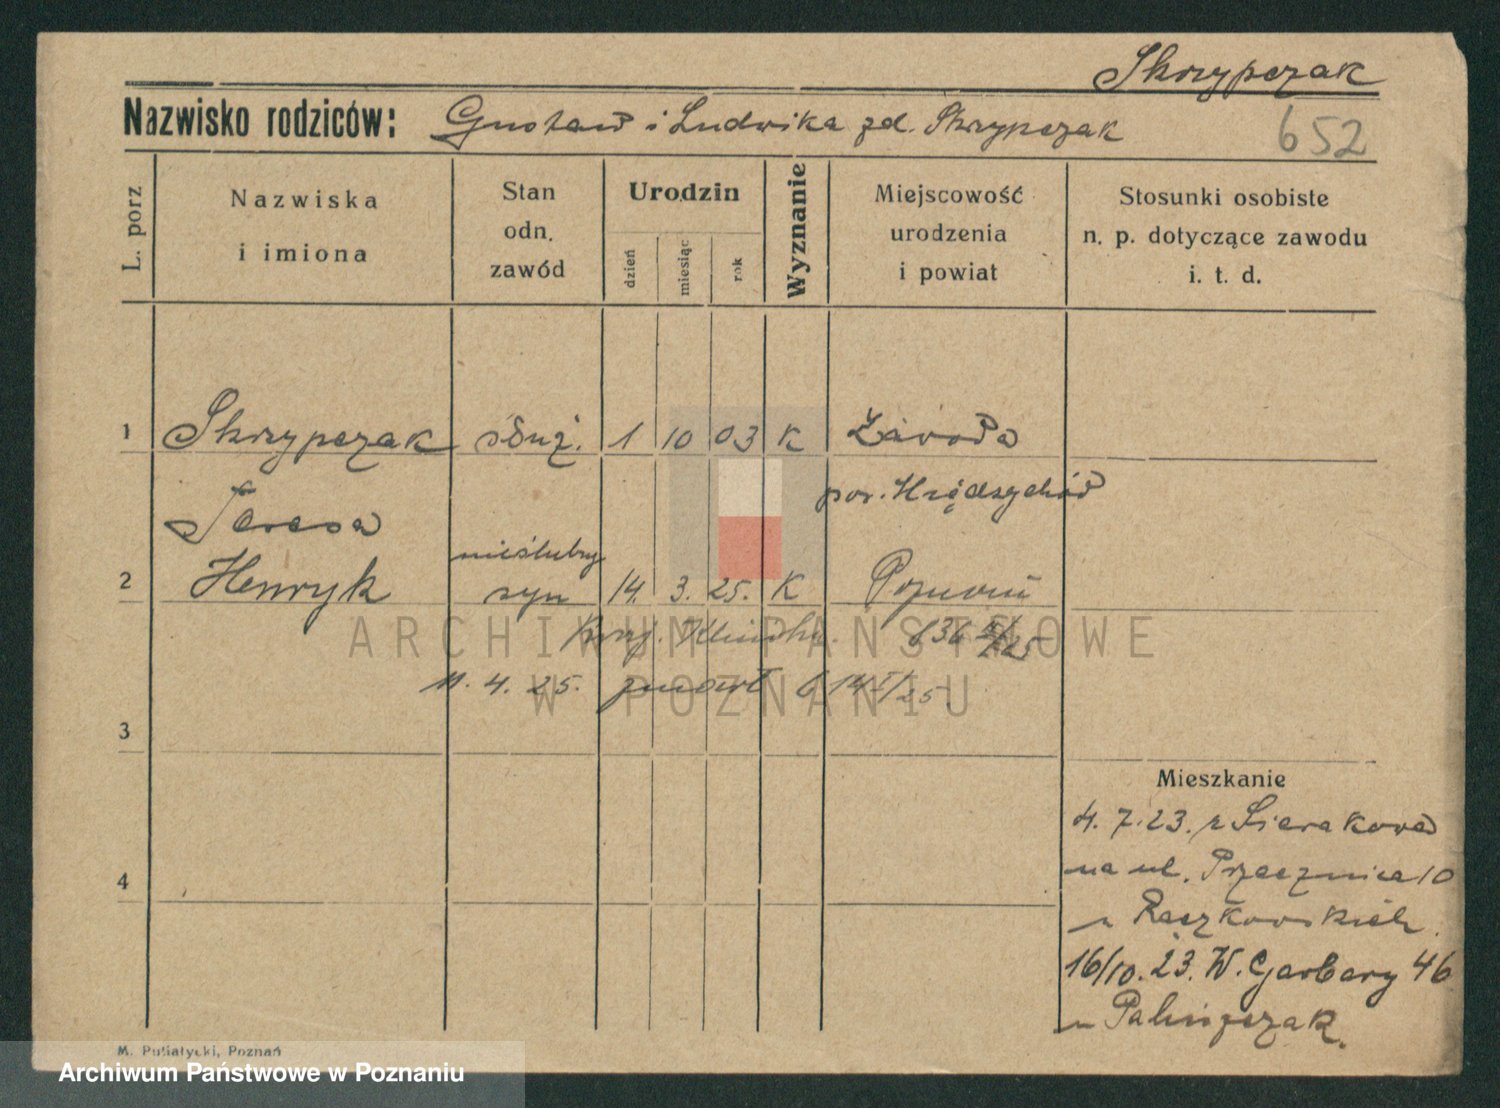 Skrzypczak
Nazwisko rodziców: Gustaw i Ludwika zd. Skrzypczak
652
L. porz
Nazwiska
i imiona
Stan
odn.
zawód
Urodzin
dzień
miesiąc
rok
Wyznanie
Miejscowość
urodzenia
i powiat
Stosunki osobiste
n. p. dotyczące zawodu
i. t. d.
1 Skrzypczak służ. 1 10 03 K
pow. Międzychód
Teresa
nieślubny
2 Henryk syn 14. 3. 25. K Poznań
ARCHIWUM PAŃSTWOWE
W POZNANIU
11. 4. 25. zmarł
3
Mieszkanie
4. 7. 23. z Sierakowa
na ul. Przecznica 10
4
u Raczkowskich
16/10. 23. W. Garbary 46
u
M. Putiatycki, Poznań
Archiwum Państwowe w Poznaniu